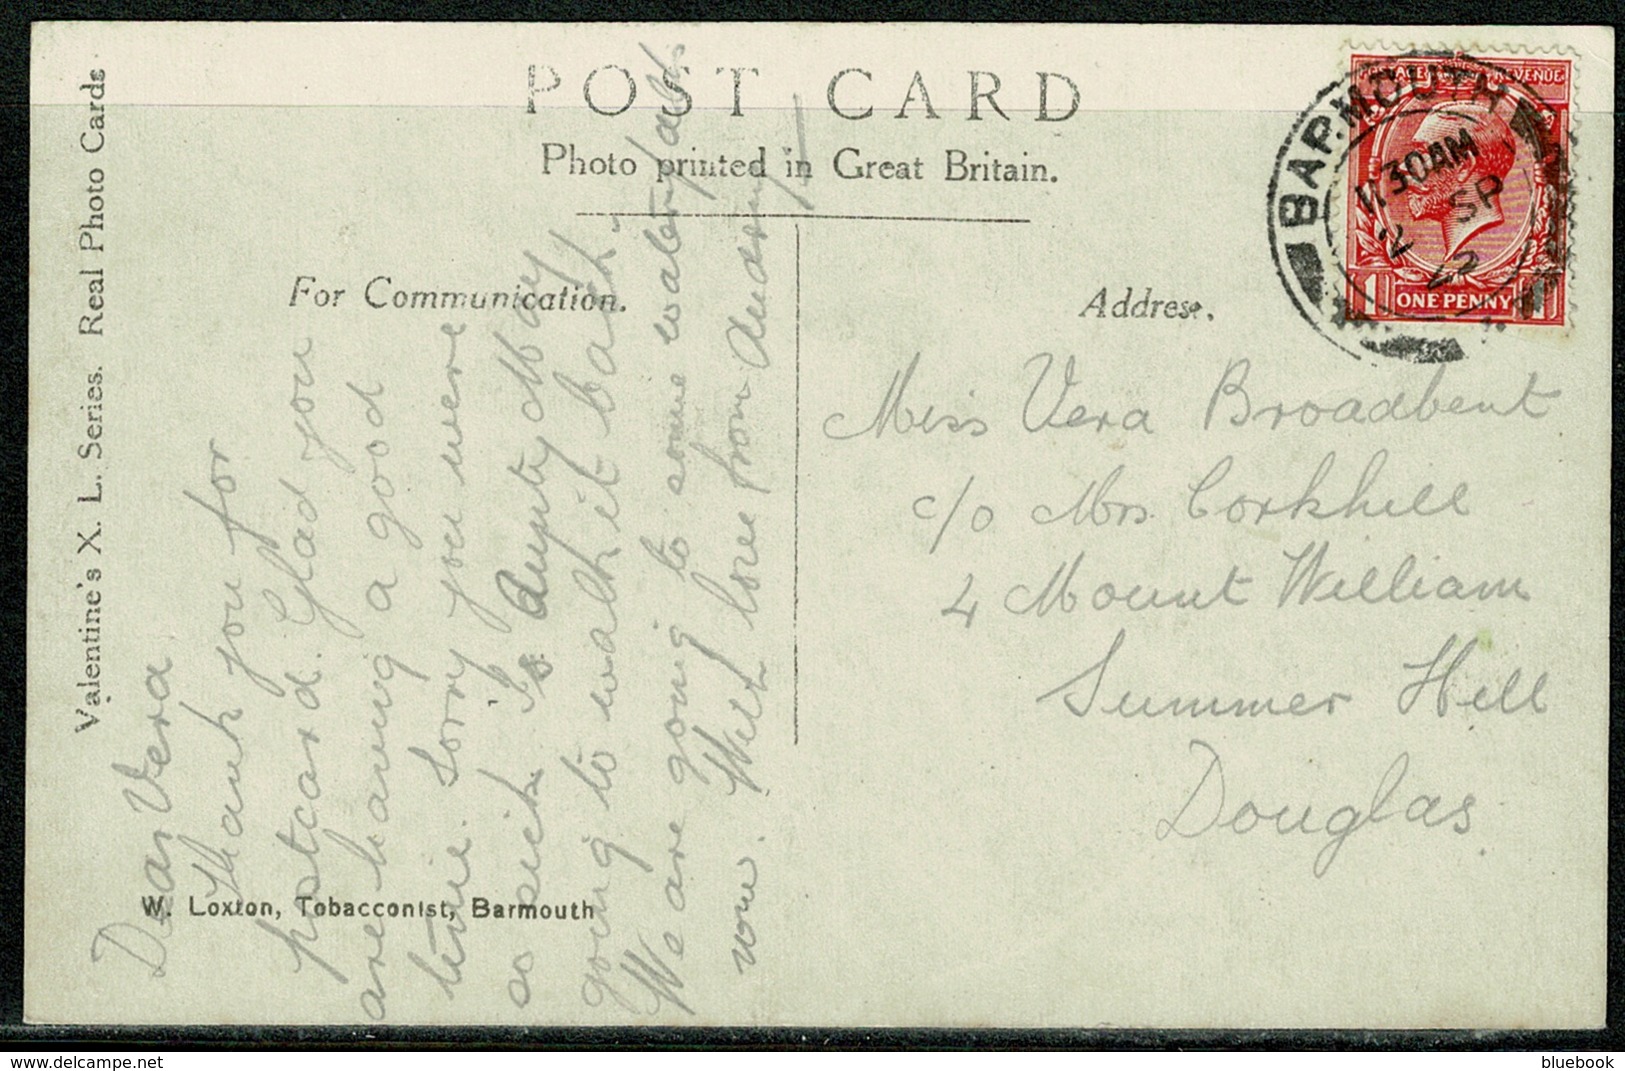 POST CARD
Photo printed in Great Britain.
For Communication.
Address.
Valentine's X. L. Series. Real Photo Cards.
W. Loxton, Tobacconist, Barmouth
Dear Vera
Thank you for
postcard. Glad you
are having a good
time. Sorry you were
so sick. Is Aunty May
going to walk it back.
We are going to some waterfalls
now. Well love from Audrey
Miss Vera Broadbent
c/o Mrs Corkhill
4 Mount William
Summer Hill
Douglas
BARMOUTH
11 30AM
2 SP
22
POSTAGE REVENUE
1 ONE PENNY 1
delcampe.net
bluebook